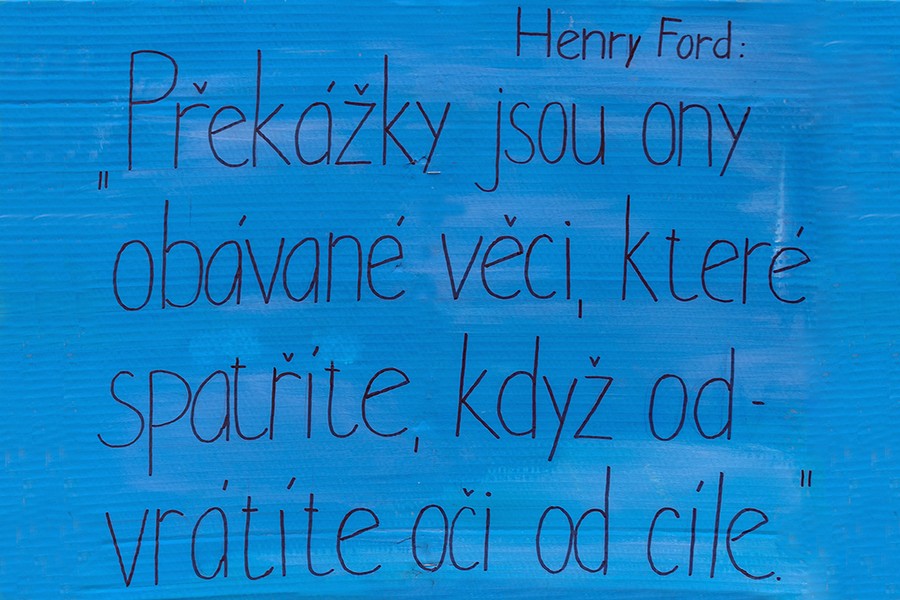 Henry Ford:
„Překážky jsou ony
obávané věci, které
spatříte, když od-
vrátíte oči od cíle."